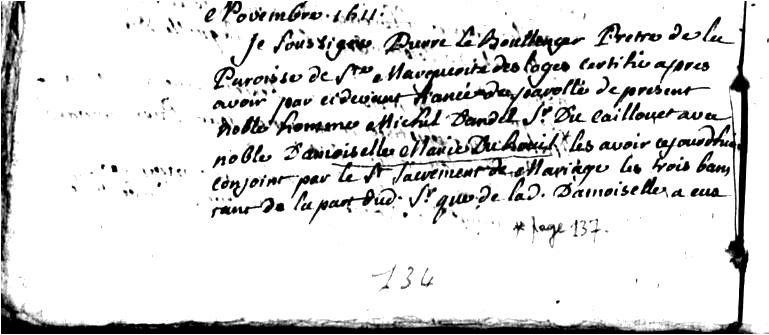 Novembre 1611.
Je soussigné Pierre le Boullenger Pretre de la
Paroisse de Ste Marguerite des loges certifie apres
avoir par ci devant fiancé de parolle de present
noble homme Michel Dandel Sr. Du Caillouet avec
noble Damoiselle Marie Du Houil* les avoir cejourdhui
conjoint par le St Sacrement de Mariage les trois bans
tant de la part dud. Sr. que de lad. Damoiselle a eus
* page 137.
134